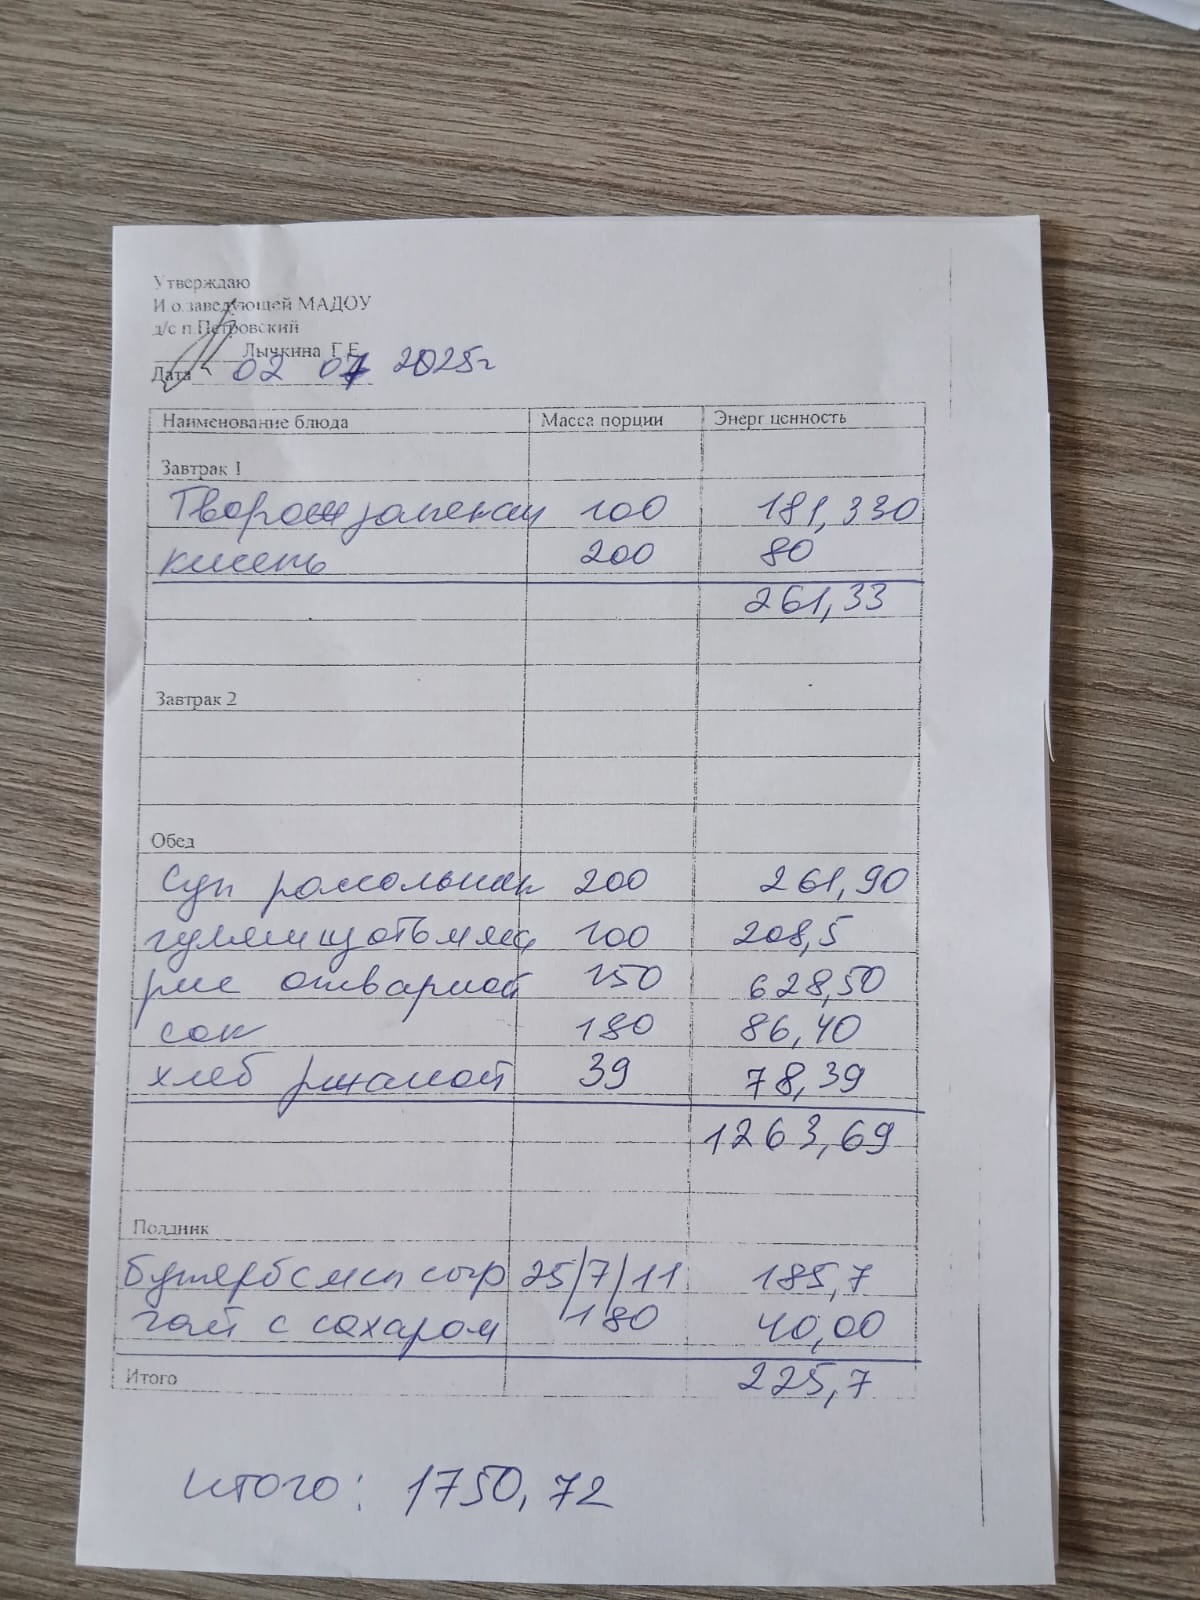 Утверждаю
И о.заведующей МАДОУ
д/с п.Петровский
Лычкина Г.Е.
Дата 02 07 2025г
Наименование блюда Масса порции Энерг ценность
Завтрак 1
100 181,330
кисель 200 80
261,33
Завтрак 2
Обед
Суп рассольник 200 261,90
гуляш 100 208,5
рис отварной 150 628,50
сок 180 86,40
хлеб ржаной 39 78,39
1263,69
Полдник
сыр 25/7/11 185,7
чай с сахаром 180 40,00
Итого 225,7
итого: 1750,72